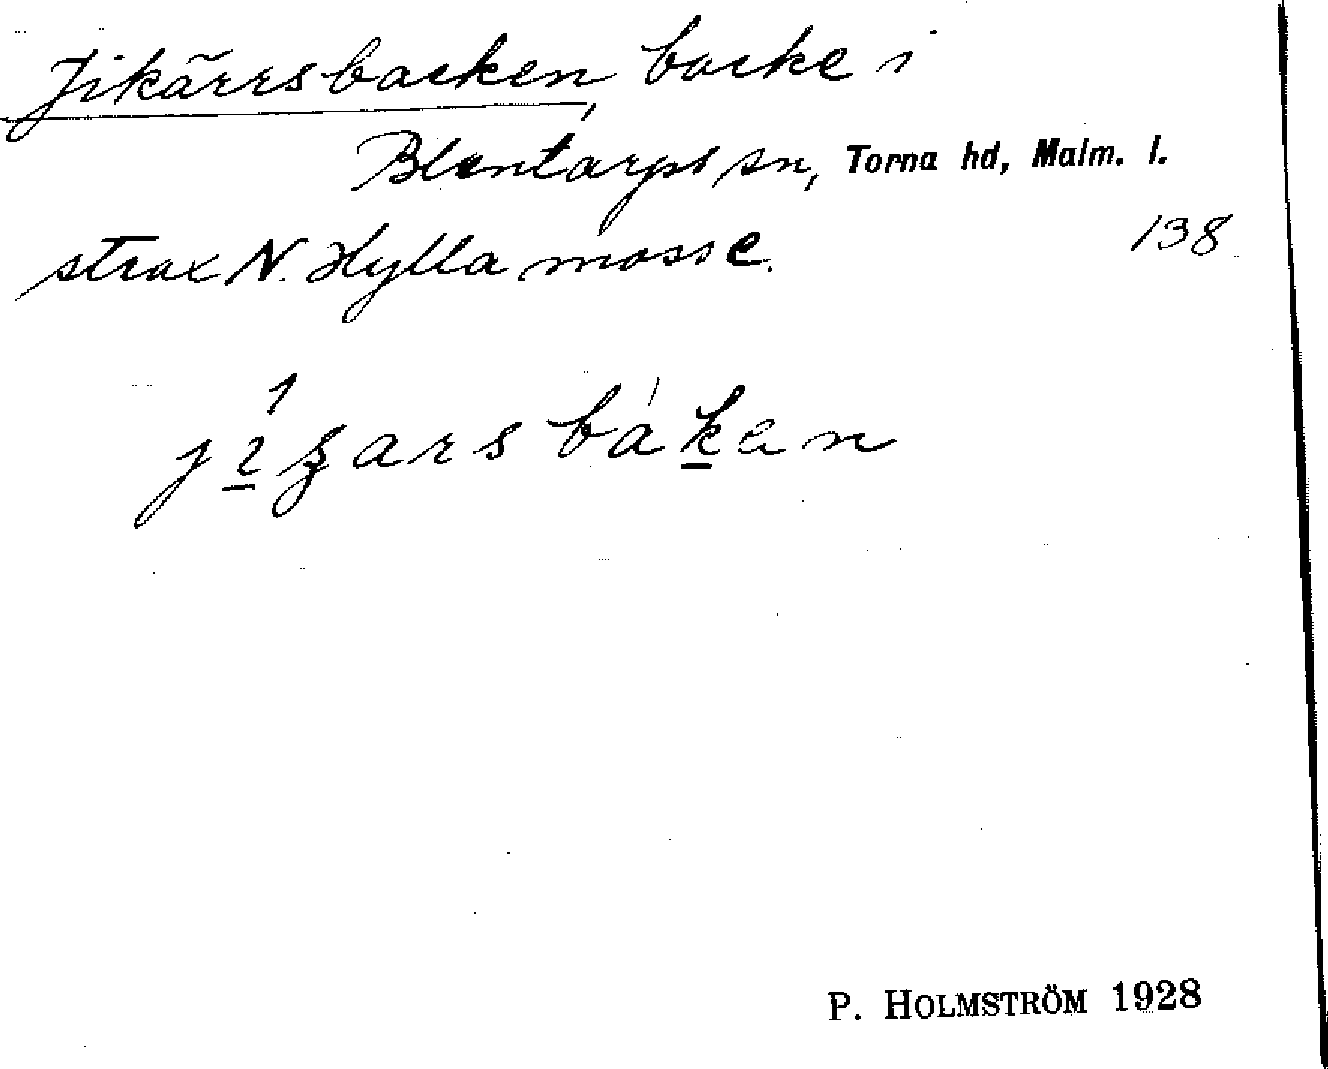 Jikärrsbacken, backe i
Blentarps sn, Torna hd, Malm. l.
strax N. Hylla mosse. 138
P. HOLMSTRÖM 1928